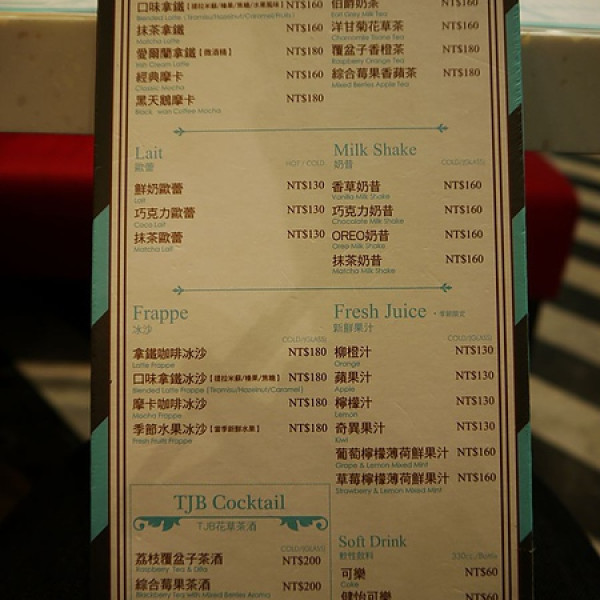 口味拿鐵【提拉米蘇/榛果/焦糖/水果風味】 NT$160
Blended Latte (Tiramisu/Hazelnut/Caramel/Fruits)
抹茶拿鐵 NT$160
Matcha Latte
愛爾蘭拿鐵【微酒精】 NT$180
Irish Cream Latte
經典摩卡 NT$160
Classic Mocha
黑天鵝摩卡 NT$180
Black swan Coffee Mocha
伯爵奶茶 NT$160
Earl Grey Milk Tea
洋甘菊花草茶 NT$160
Chamomile Tisane Tea
覆盆子香橙茶 NT$180
Raspberry Orange Tea
綜合莓果香蘋茶 NT$180
Mixed Berries Apple Tea
Lait
歐蕾 HOT / COLD
鮮奶歐蕾 NT$130
Lait
巧克力歐蕾 NT$130
Coco Lait
抹茶歐蕾 NT$130
Matcha Lait
Milk Shake
奶昔 COLD/(GLASS)
香草奶昔 NT$160
Vanilla Milk Shake
巧克力奶昔 NT$160
Chocolate Milk Shake
OREO奶昔 NT$160
Oreo Milk Shake
抹茶奶昔 NT$160
Matcha Milk Shake
Frappe
冰沙
COLD/(GLASS)
拿鐵咖啡冰沙 NT$180
Latte Frappe
口味拿鐵冰沙【提拉米蘇/榛果/焦糖】 NT$180
Blended Latte Frappe (Tiramisu/Hazelnut/Caramel)
摩卡咖啡冰沙 NT$180
Mocha Frappe
季節水果冰沙【當季新鮮水果】 NT$180
Fresh Fruit Frappe
Fresh Juice ・季節限定
新鮮果汁
COLD/(GLASS)
柳橙汁 NT$130
Orange
蘋果汁 NT$130
Apple
檸檬汁 NT$130
Lemon
奇異果汁 NT$130
Kiwi
葡萄檸檬薄荷鮮果汁 NT$160
Grape & Lemon Mixed Mint
草莓檸檬薄荷鮮果汁 NT$160
Strawberry & Lemon Mixed Mint
TJB Cocktail
TJB花草茶酒
COLD/(GLASS)
荔枝覆盆子茶酒 NT$200
Raspberry Tea & Dita
綜合莓果茶酒 NT$200
Blackberry Tea with Mixed Berries Aroma
Soft Drink
軟性飲料 330cc/Bottle
可樂 NT$60
Coke
健怡可樂 NT$60